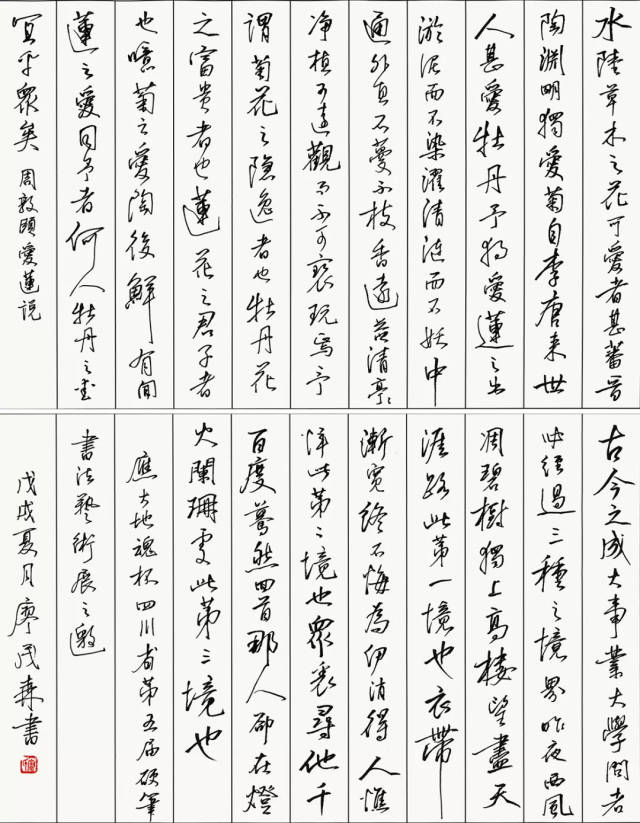 水陸草木之花可愛者甚蕃晉
陶淵明獨愛菊自李唐来世
人甚愛牡丹予獨愛蓮之出
淤泥而不染濯清漣而不妖中
通外直不蔓不枝香遠益清亭〻
净植可遠觀而不可褻玩焉予
謂菊花之隐逸者也牡丹花
之富貴者也蓮花之君子者
也噫菊之愛陶後鮮有聞
蓮之愛同予者何人牡丹之愛
宜乎衆矣 周敦頤愛蓮説
古今之成大事業大學問者
必經過三種之境界昨夜西風
凋碧樹獨上高樓望盡天
涯路此第一境也衣帶
漸寬終不悔為伊消得人憔
悴此第二境也衆裏尋他千
百度驀然回首那人卻在燈
火闌珊處此第三境也
應大地魂杯四川省第五届硬筆
書法藝術展之邀
戊戌夏月廖森書